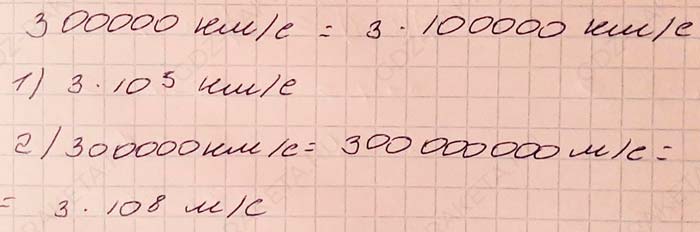 300000 км/с = 3 · 100000 км/с
1) 3 · 10⁵ км/с
2) 300000км/с = 300 000 000 м/с =
= 3 · 10⁸ м/с